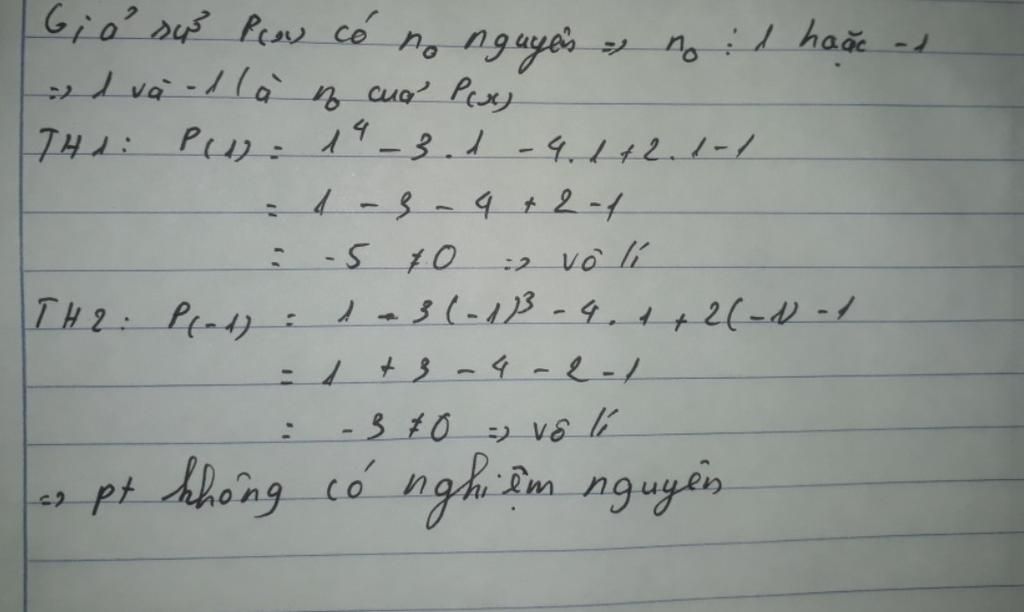 Giả sử P(x) có n₀ nguyên => n₀ ⋮ 1 hoặc -1
=> 1 và -1 là n₀ của P(x)
TH1: P(1) = 1⁴ - 3.1 - 4.1 + 2.1 - 1
= 1 - 3 - 4 + 2 - 1
= -5 ≠ 0 => vô lí
TH2: P(-1) = 1 - 3(-1)³ - 4.1 + 2(-1) - 1
= 1 + 3 - 4 - 2 - 1
= -3 ≠ 0 => vô lí
=> pt không có nghiệm nguyên